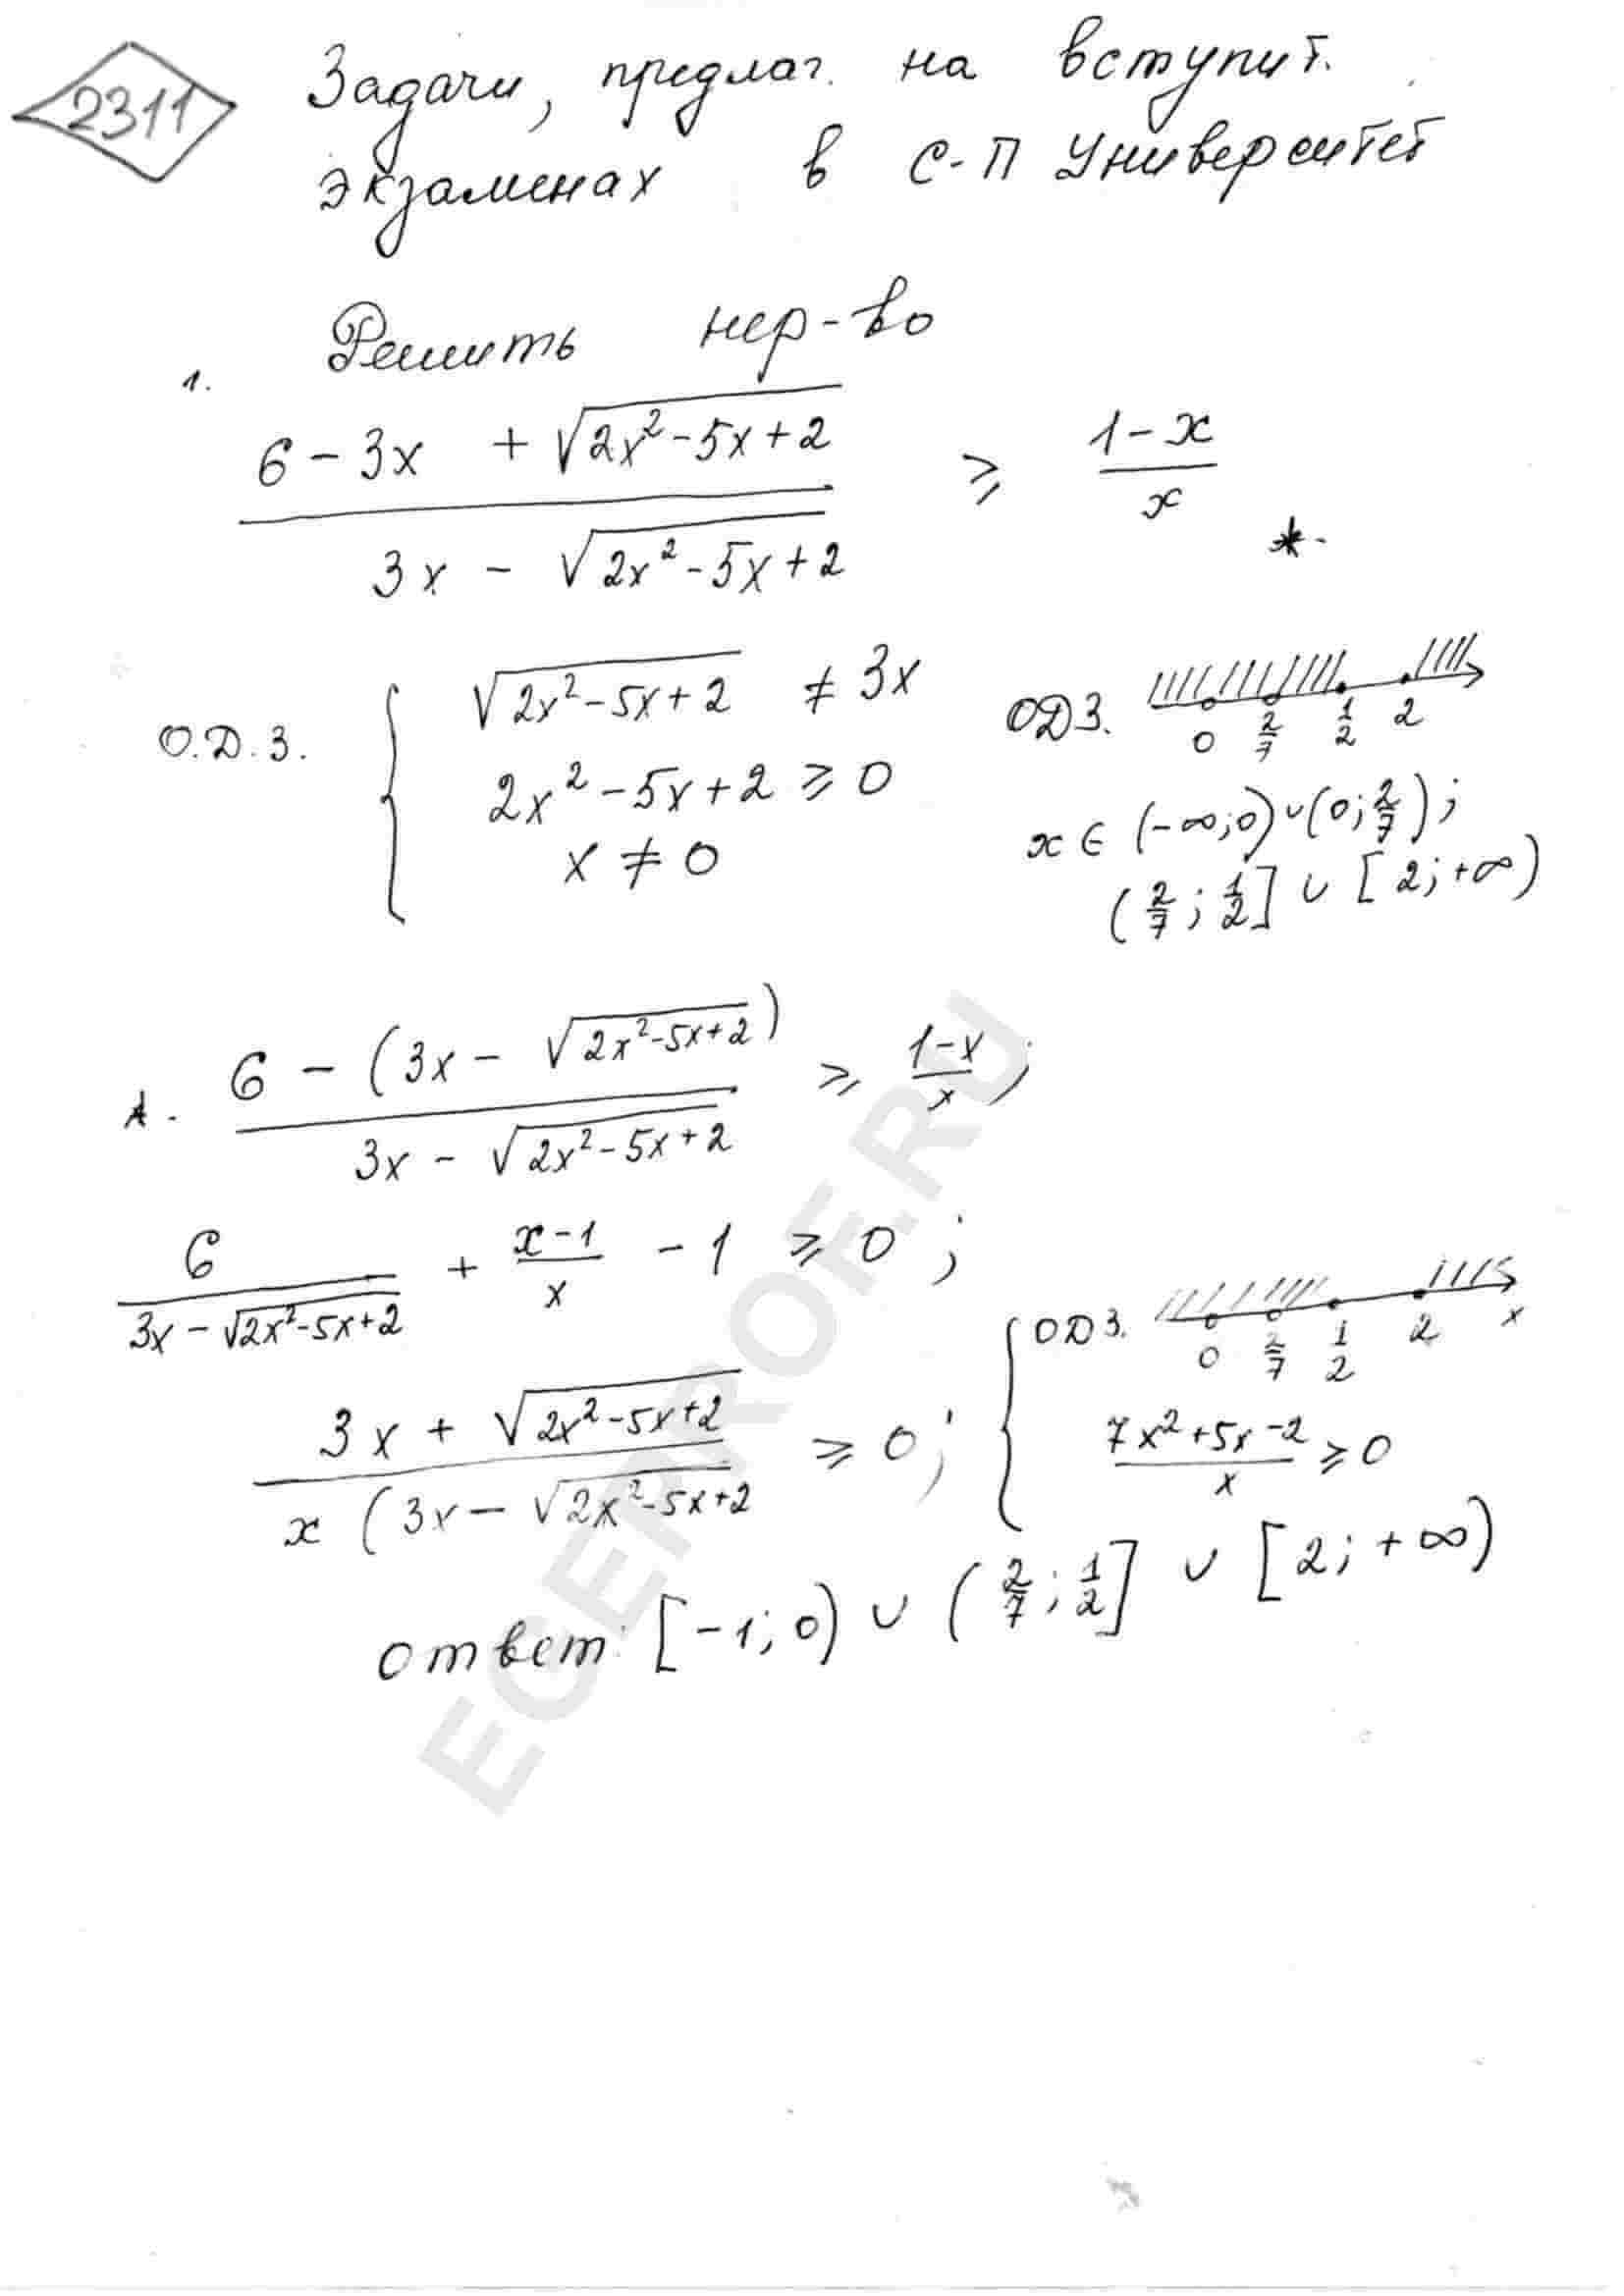 2311
Задачи, предлаг. на вступит.
экзаменах в С-П Университет
Решить нер-во
1.
6 - 3x + √(2x² - 5x + 2)
3x - √(2x² - 5x + 2)
⩾
1 - x
x
*.
О.Д.З.
√(2x² - 5x + 2) ≠ 3x
2x² - 5x + 2 ⩾ 0
x ≠ 0
ОДЗ.
0 2/7 1/2 2
x ∈ (-∞; 0) ∪ (0; 2/7);
(2/7; 1/2] ∪ [2; +∞)
6 - (3x - √(2x² - 5x + 2))
3x - √(2x² - 5x + 2)
⩾ (1-x)/x;
6/(3x - √(2x² - 5x + 2)) + (x - 1)/x - 1 ⩾ 0;
3x + √(2x² - 5x + 2)
x (3x - √(2x² - 5x + 2)
⩾ 0;
ОДЗ.
0 2/7 1/2 2 x
(7x² + 5x - 2)/x ⩾ 0
ответ: [-1; 0) ∪ (2/7; 1/2] ∪ [2; +∞)
EGEPROF.RU